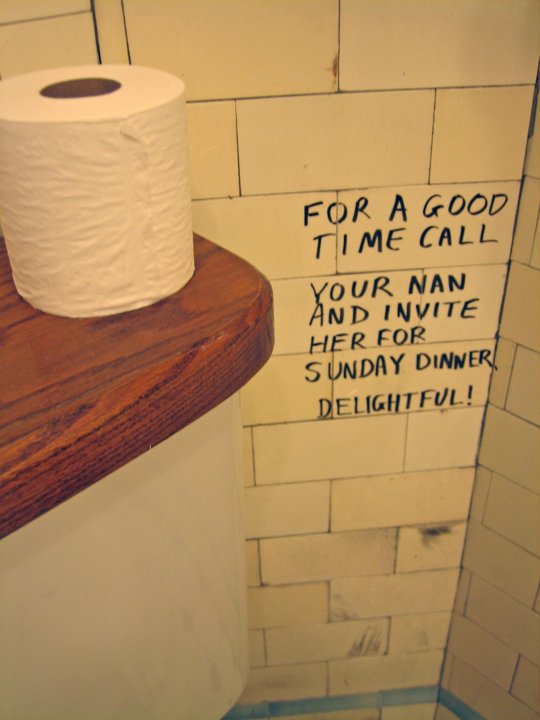 FOR A GOOD
TIME CALL
YOUR NAN
AND INVITE
HER FOR
SUNDAY DINNER.
DELIGHTFUL!